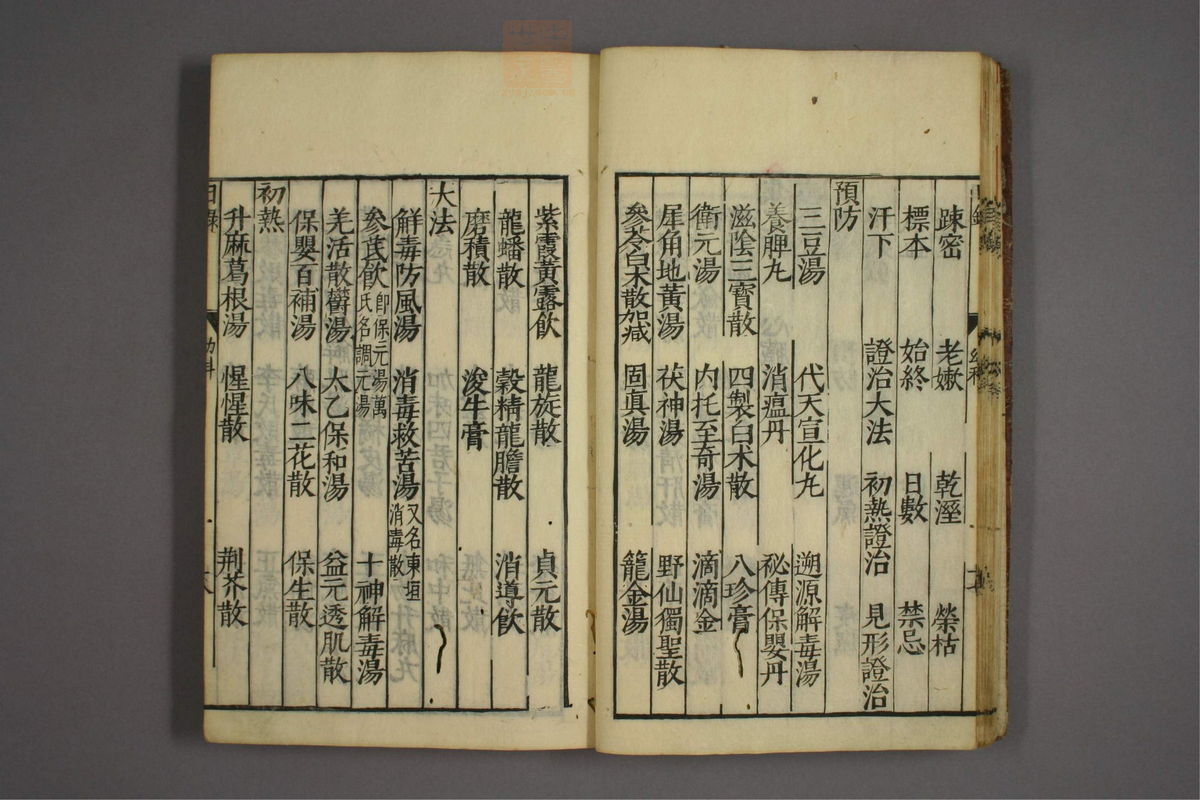 疎密 老嫰 乾溼 榮枯
標本 始終 日數 禁忌
汗下 證治大法 初熱證治 見形證治
預防
三豆湯 代天宣化丸 遡源解毒湯
養脾丸 消瘟丹 秘傳保嬰丹
滋陰三寶散 四製白朮散 八珍膏
衛元湯 內托至奇湯 滴滴金
犀角地黃湯 茯神湯 野仙獨聖散
參苓白朮散加減 固真湯 籠金湯
紫霞黃露飲 龍旋散 貞元散
龍蟠散 穀精龍膽散 消導飲
磨積散 浚牛膏
大法
鮮毒防風湯 消毒救苦湯 又名東垣消毒散
參芪飲 卽保元湯萬氏名調元湯 十神解毒湯
羌活散欝湯 太乙保和湯 益元透肌散
保嬰百補湯 八味二花散 保生散
初熱
升麻葛根湯 惺惺散 荆芥散
目錄 幼科